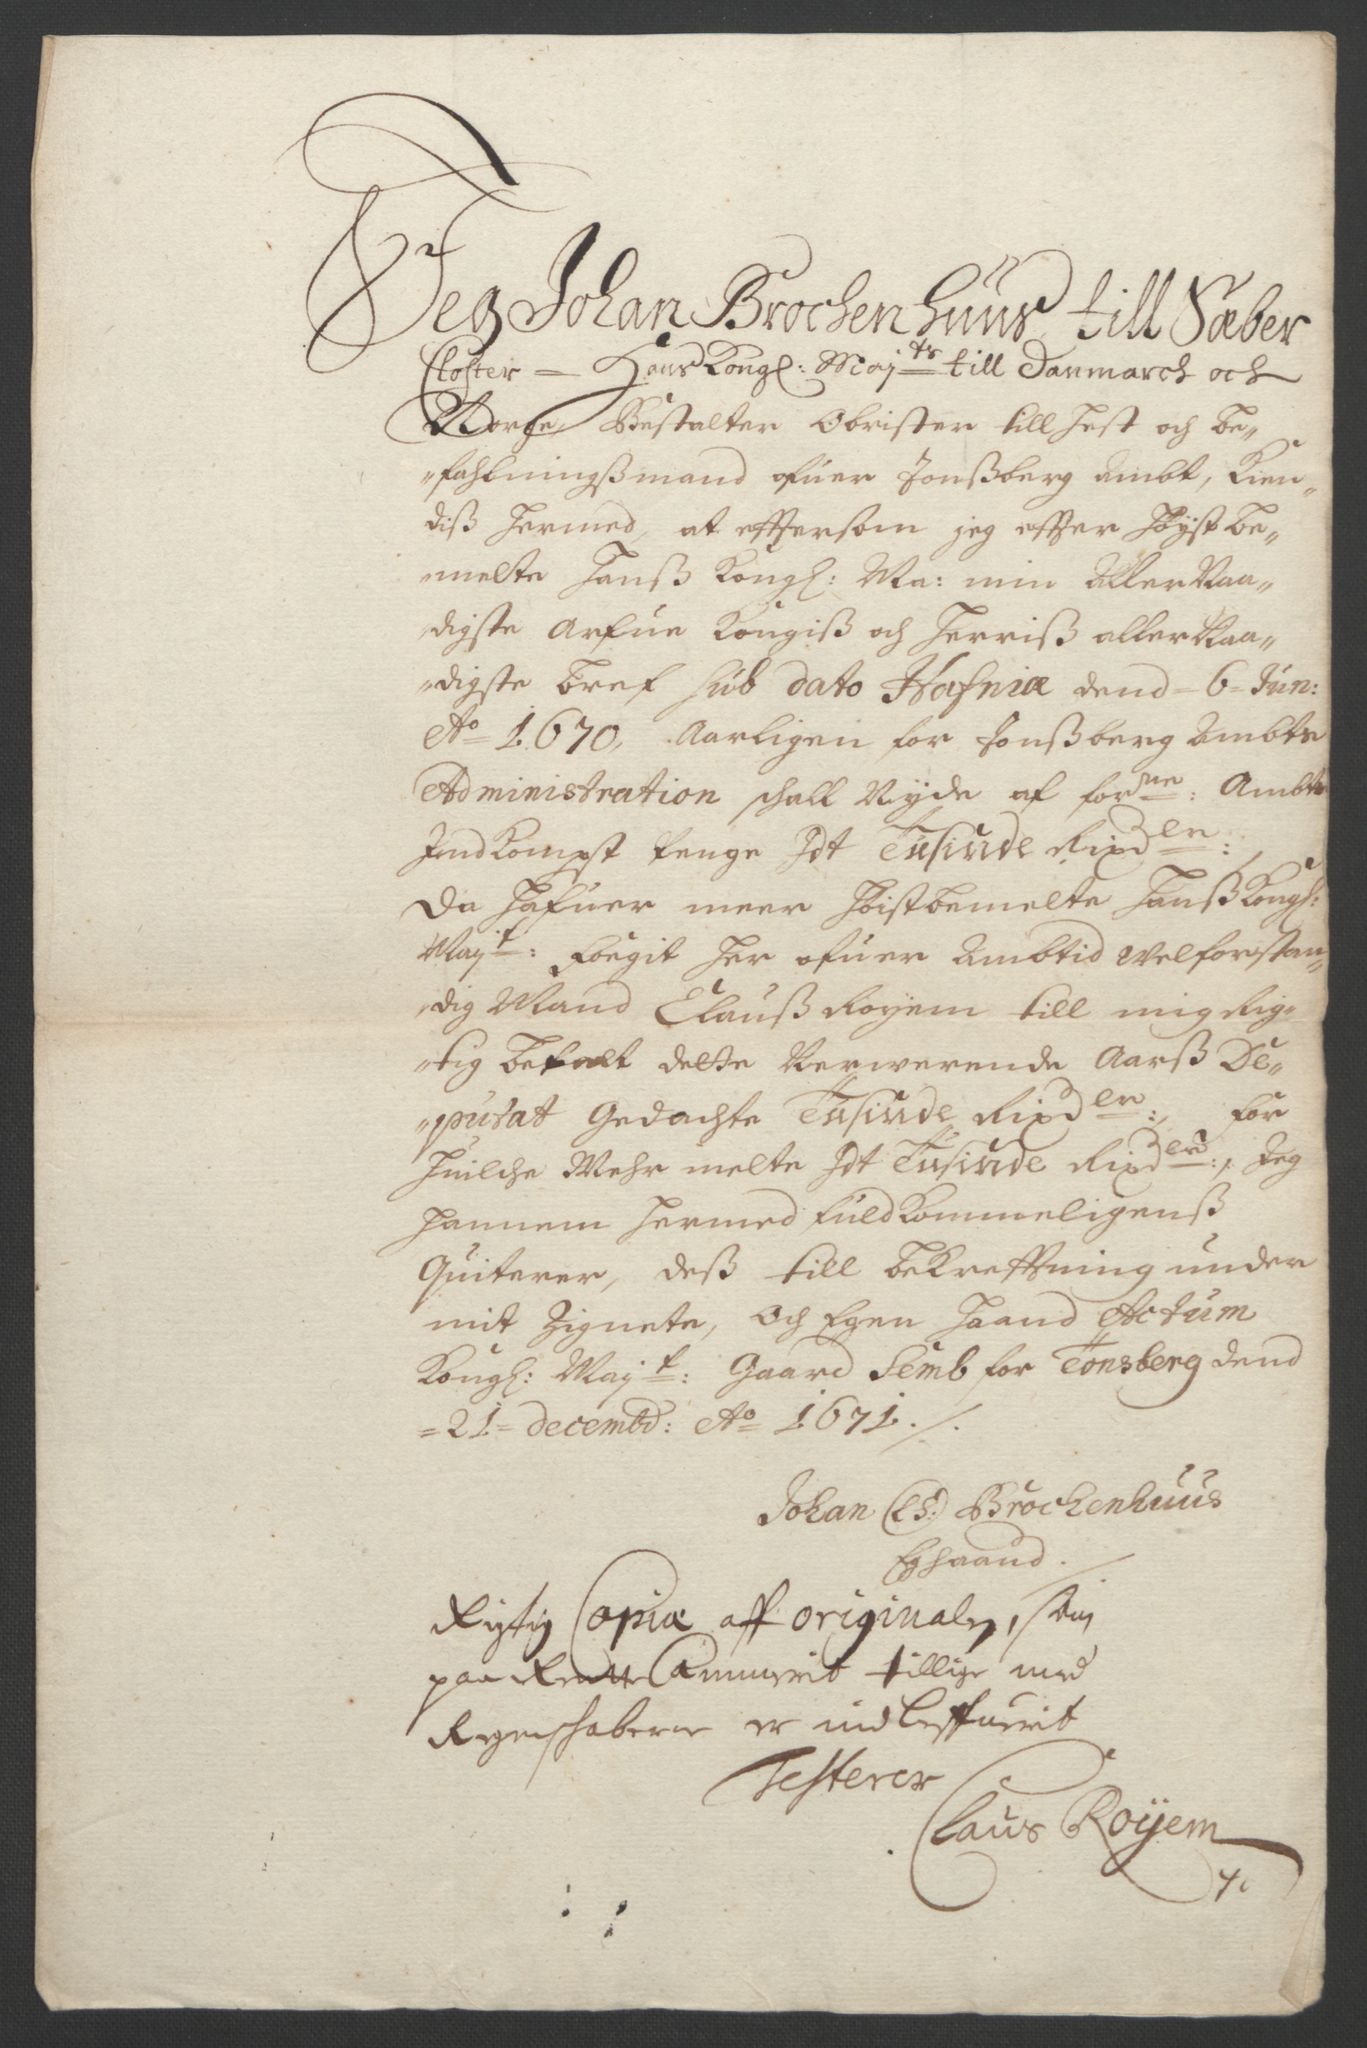 Jeg Johan Brochenhuus till Sæber
Closter — Hans Kongl: Maj:ts till Danmarch och
Norge, Bestalter Obrister till Hest och Be-
-fahlningßmand ofuer Tonßberg Ambt, Kien-
diß Hermed, at efftersom jeg effter Høyst be-
-melte Hanß Kongl: Ma: min AllerNaa-
-digste Arfue Kongiß och Herriß allerNaa-
-digste bref sub dato Hafniæ dend - 6 - Jun:
Ao 1670, Aarligen for Tonßberg Ambts
Administration schall Nyde af forne: Ambts
Indkompst Penge Idt Tusinde Rixder:
Da hafuer meer Høistbemelte Hanß Kongl:
Majt: Foegit her ofuer Ambtid Welforstan-
-dig Mand Clauß Royem till mig Rig-
-tig betalt dette Nerwerende Aarß De-
-putat Gedachte Tusinde Rixder:, for
Huilche Mehr melte Idt Tusinde Rixder:, Jeg
Hannem Hermed fuldKommeligenß
Quiterer, deß till beKrefftning under
mit Zignete, Och Egen Haand Actum
Kongl: Majt: Gaard Semb for Tonsberg dend
= 21 = decembr: Ao 1671 ./.
Johan (LS.) Brochenhuus
Eghaand.
Rigtig Copiæ aff originalen, som
paa Rentte Cammerit tillige med
Regenschaberne er indleffuerit
Testerer
Claus Royem